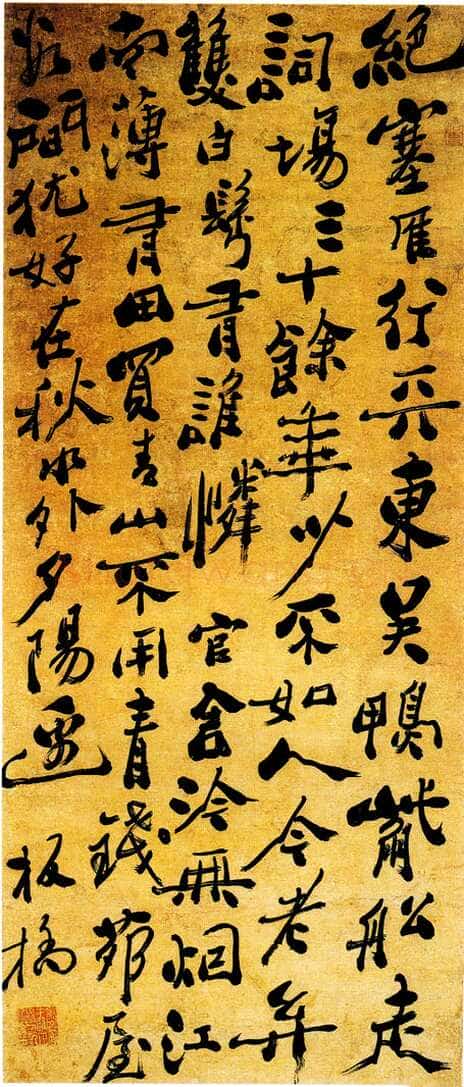 絕塞雁行天東吳鴨觜船走
詞場三十餘年少不如人今老矣
雙白鬢有誰憐官舍冷無烟江
南薄有田買青山不用青錢茆屋
數間犹好在秋水外夕陽邊 板橋